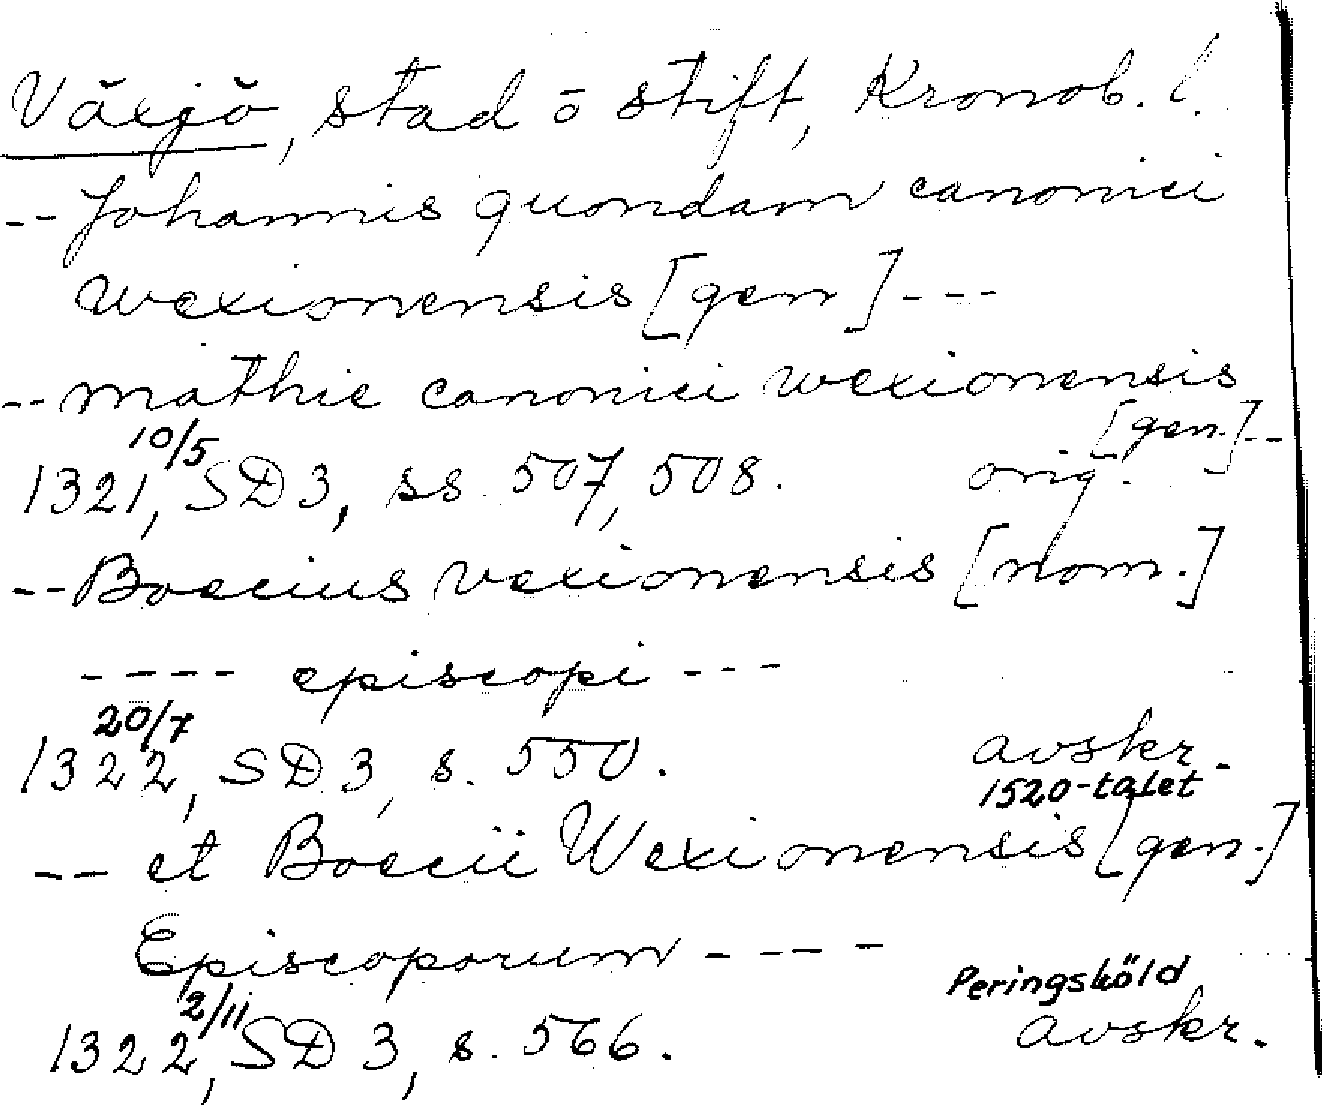 Växjö, stad o stift, Kronob. l.
-- Johannis quondam canonici
wexionensis [gen] ---
-- mathie canonici wexionensis
[gen.] --
10/5
1321, SD 3, ss. 507, 508. orig.
-- Boecius vexionensis [nom.]
---- episcopi ---
20/7
1322, SD 3, s. 550. avskr.
1520-talet
-- et Boecii Wexionensis [gen.]
Episcoporum ----
Peringsköld
2/11
1322, SD 3, s. 566. avskr.